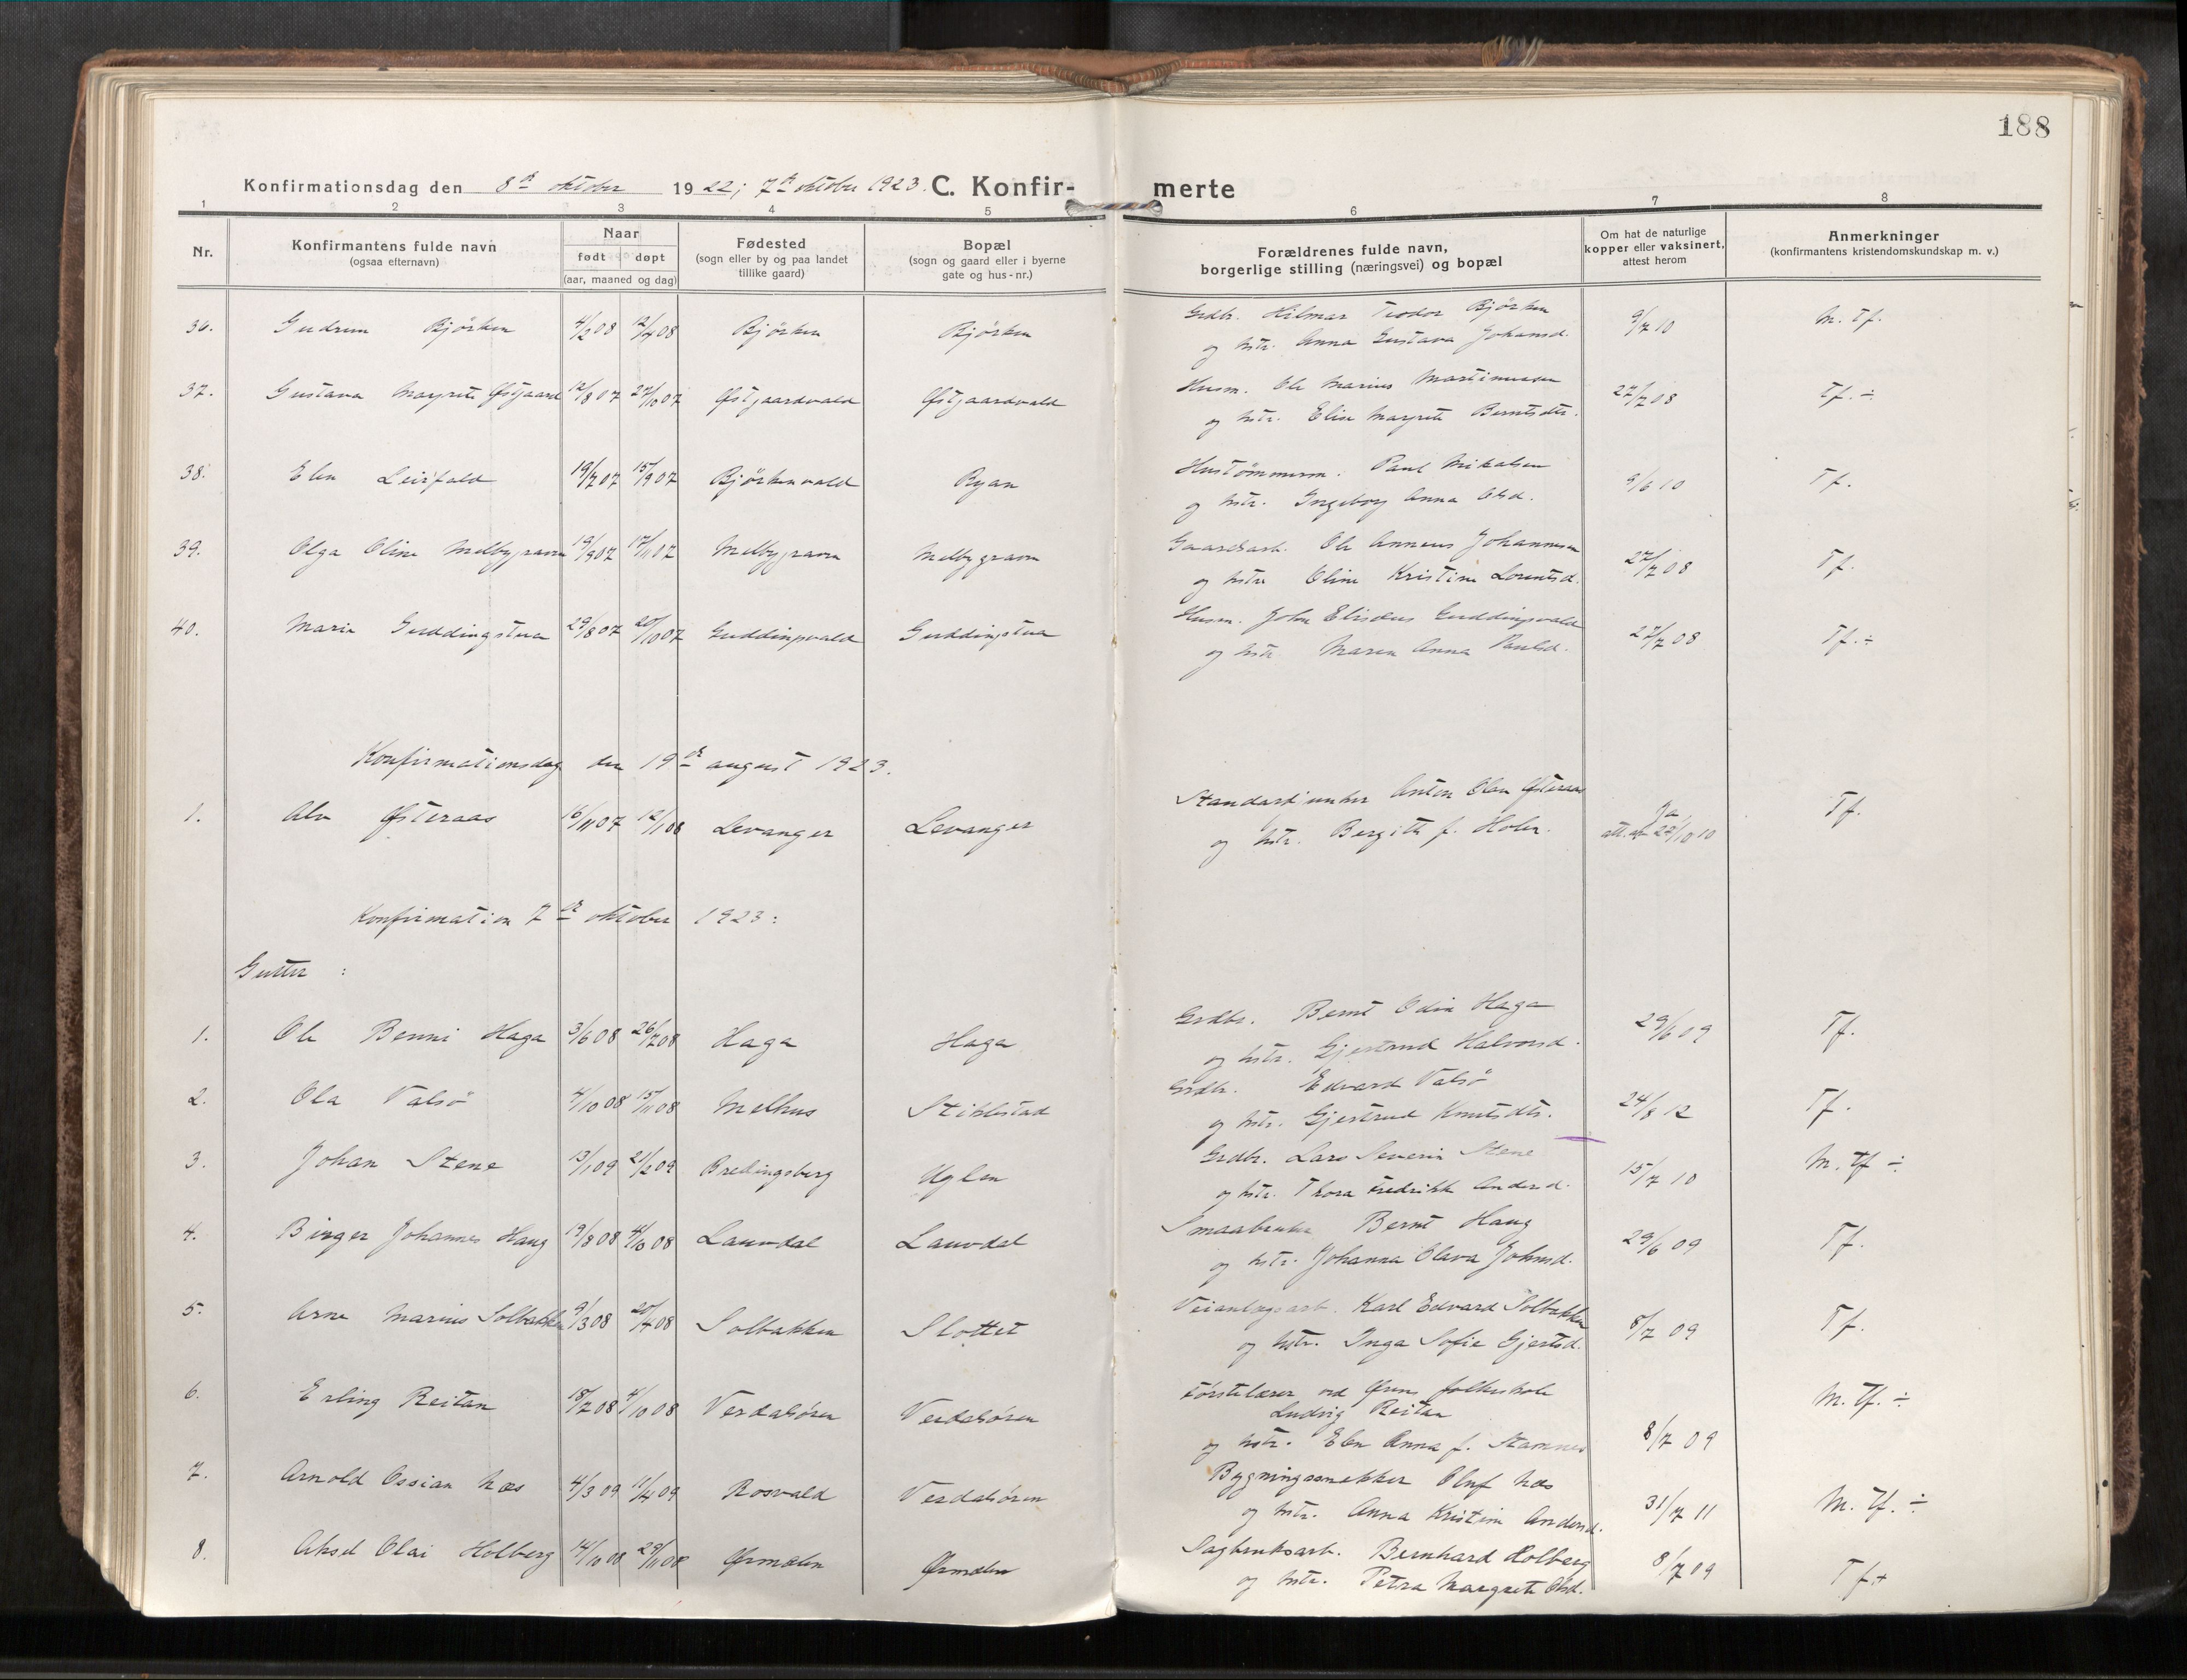 188
Konfirmationsdag den 8de oktober 1922; 7de oktober 1923. C. Konfir- merte
1 2 3 4 5 6 7 8
Nr.
Konfirmantens fulde navn
(ogsaa efternavn)
Naar
født døpt
(aar, maaned og dag)
Fødested
(sogn eller by og paa landet
tillike gaard)
Bopæl
(sogn og gaard eller i byerne
gate og hus-nr.)
Forældrenes fulde navn,
borgerlige stilling (næringsvei) og bopæl
Om hat de naturlige
kopper eller vaksinert,
attest herom
Anmerkninger
(konfirmantens kristendomskundskap m. v.)
36. Gudrun Bjørken 4/2 08 12/4 08 Bjørken Bjørken Grdbr. Hilmar Teodor Bjørken 9/7 10 M. Tf.
og hstr. Anna Gustava Johansd.
37. Gustava Margrete Østgaard 12/8 07 27/10 07 Østgaardvald Østgaardvald Husm. Ole Marius Martinussen 27/7 08 Tf. ÷
og hstr. Elise Margrete Berntsdtr.
38. Elen Leirfald 19/7 07 15/9 07 Bjørkenvald Ryan Hustømmerm. Paul Mikalsen 9/6 10 Tf.
og hstr. Ingeborg Anna Olsd.
39. Olga Oline Melbygraven 19/9 07 17/11 07 Melbygraven Melbygraven Gaardsarb. Ole Anneus Johannesen 27/7 08 Tf.
og hstr. Oline Kristine Lorentsd.
40. Marie Guddingstua 29/8 07 20/10 07 Guddingsvald Guddingstua Husm. John Elisæus Guddingsvald 27/7 08 Tf. ÷
og hstr. Maren Anna Paulsd.
Konfirmationsdag den 19de august 1923.
1. Alv Østeraas 16/11 07 12/1 08 Levanger Levanger Standartjunker Anton Olau Østeraas Ja Tf.
og hstr. Bergith f. Holer. att. av 22/10 10
Konfirmation 7de oktober 1923:
Gutter :
1. Ole Benni Haga 3/6 08 26/7 08 Haga Haga Grdbr. Bernt Odin Haga 29/6 09 Tf.
og hstr. Gjertrud Halvorsd.
2. Ola Valsø 4/10 08 15/11 08 Melhus Stiklestad Grdbr. Edvard Valsø 24/8 12 Tf.
og hstr. Gjertrud Knutsdtr.
3. Johan Stene 13/1 09 21/2 09 Bredingsberg Uglen Grdbr. Lars Severin Stene 15/7 10 M. Tf ÷
og hstr. Thora Fredrikke Andersd.
4. Birger Johannes Haug 19/8 08 4/10 08 Lauvdal Lauvdal Smaabruker Bernt Haug 29/6 09 Tf.
og hstr. Johanna Olava Johnsd.
5. Arne Marius Solbakken 9/3 08 20/4 08 Solbakken Slottet Veianlægsarb. Karl Edvard Solbakken 8/7 09 Tf.
og hstr. Inga Sofie Gjertsd.
6. Erling Reitan 18/7 08 4/10 08 Verdalsøren Verdalsøren Førstelærer ved Ørens folkeskole M. Tf. ÷
Ludvig Reitan
og hstr. Elen Anna f. Stamnes 8/7 09
7. Arnold Ossian Næs 4/3 09 11/4 09 Rosvald Verdalsøren Bygningssnekker Oluf Næs 31/7 11 M. Tf. ÷
og hstr. Anna Kristine Andersd.
8. Aksel Olai Holberg 14/10 08 29/11 08 Ørmælen Ørmælen Sagbruksarb. Bernhard Holberg 8/7 09 Tf+
og hstr. Petra Margrete Olsd.